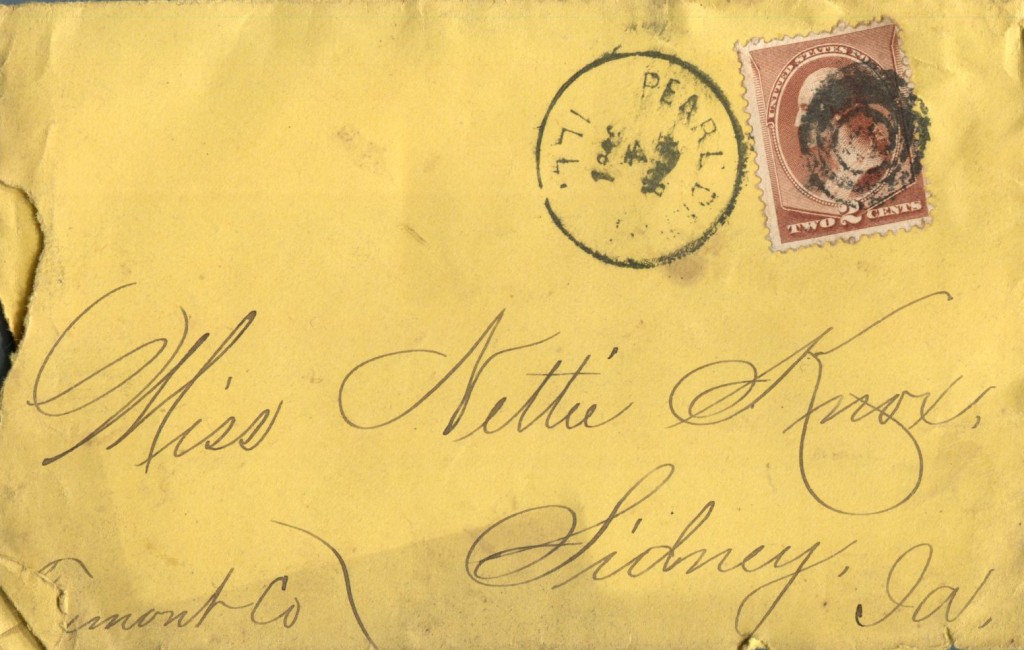 PEARL
ILL.
UNITED STATES PO
TWO 2 CENTS
Miss Nettie Knox,
Sidney, Ia.
Fremont Co